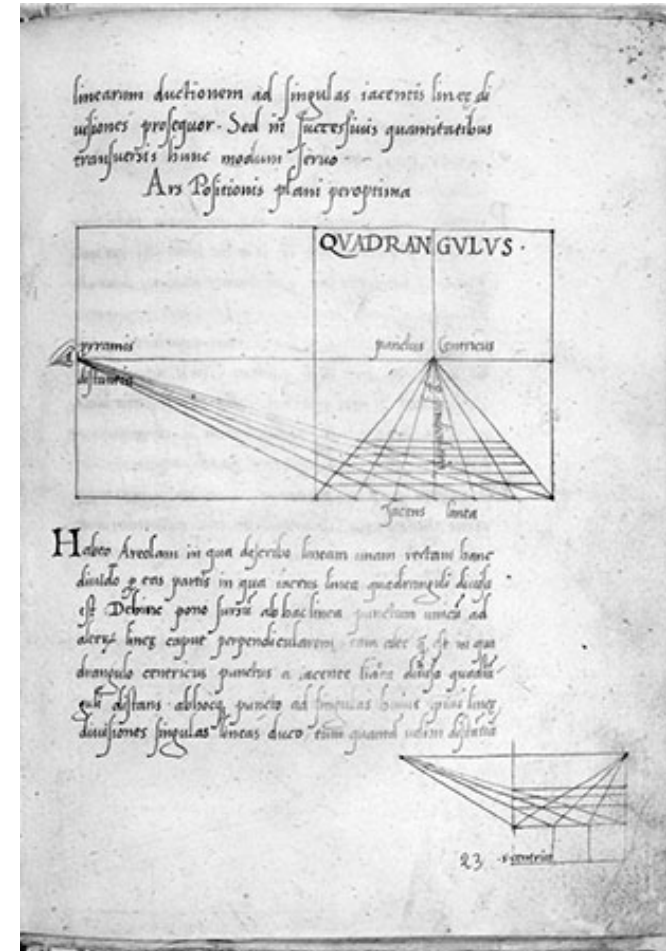 linearum ductionem ad singulas iacentis lineę di
uisiones prosequor. Sed in successiuis quantitatibus
transuersis hunc modum seruo
Ars Positionis plani peroptima
QVADRANGVLVS.
pyramis
distantię
punctus Centricus
Jacens linea
Habeo Areolam in qua describo lineam unam rectam hanc
diuido eas partis in qua iacens linea quadranguli diuisa
est Dehinc pono sursũ ab hac linea punctum unicũ ad
alterę lineę caput perpendicularem tam est in qua
drangulo centricus punctus a iacente linea diuisa quadrã
guli distans abhocq puncto ad singulas huius lineę
diuisiones singulas lineas duco tum quantã uelim distãtiã
23